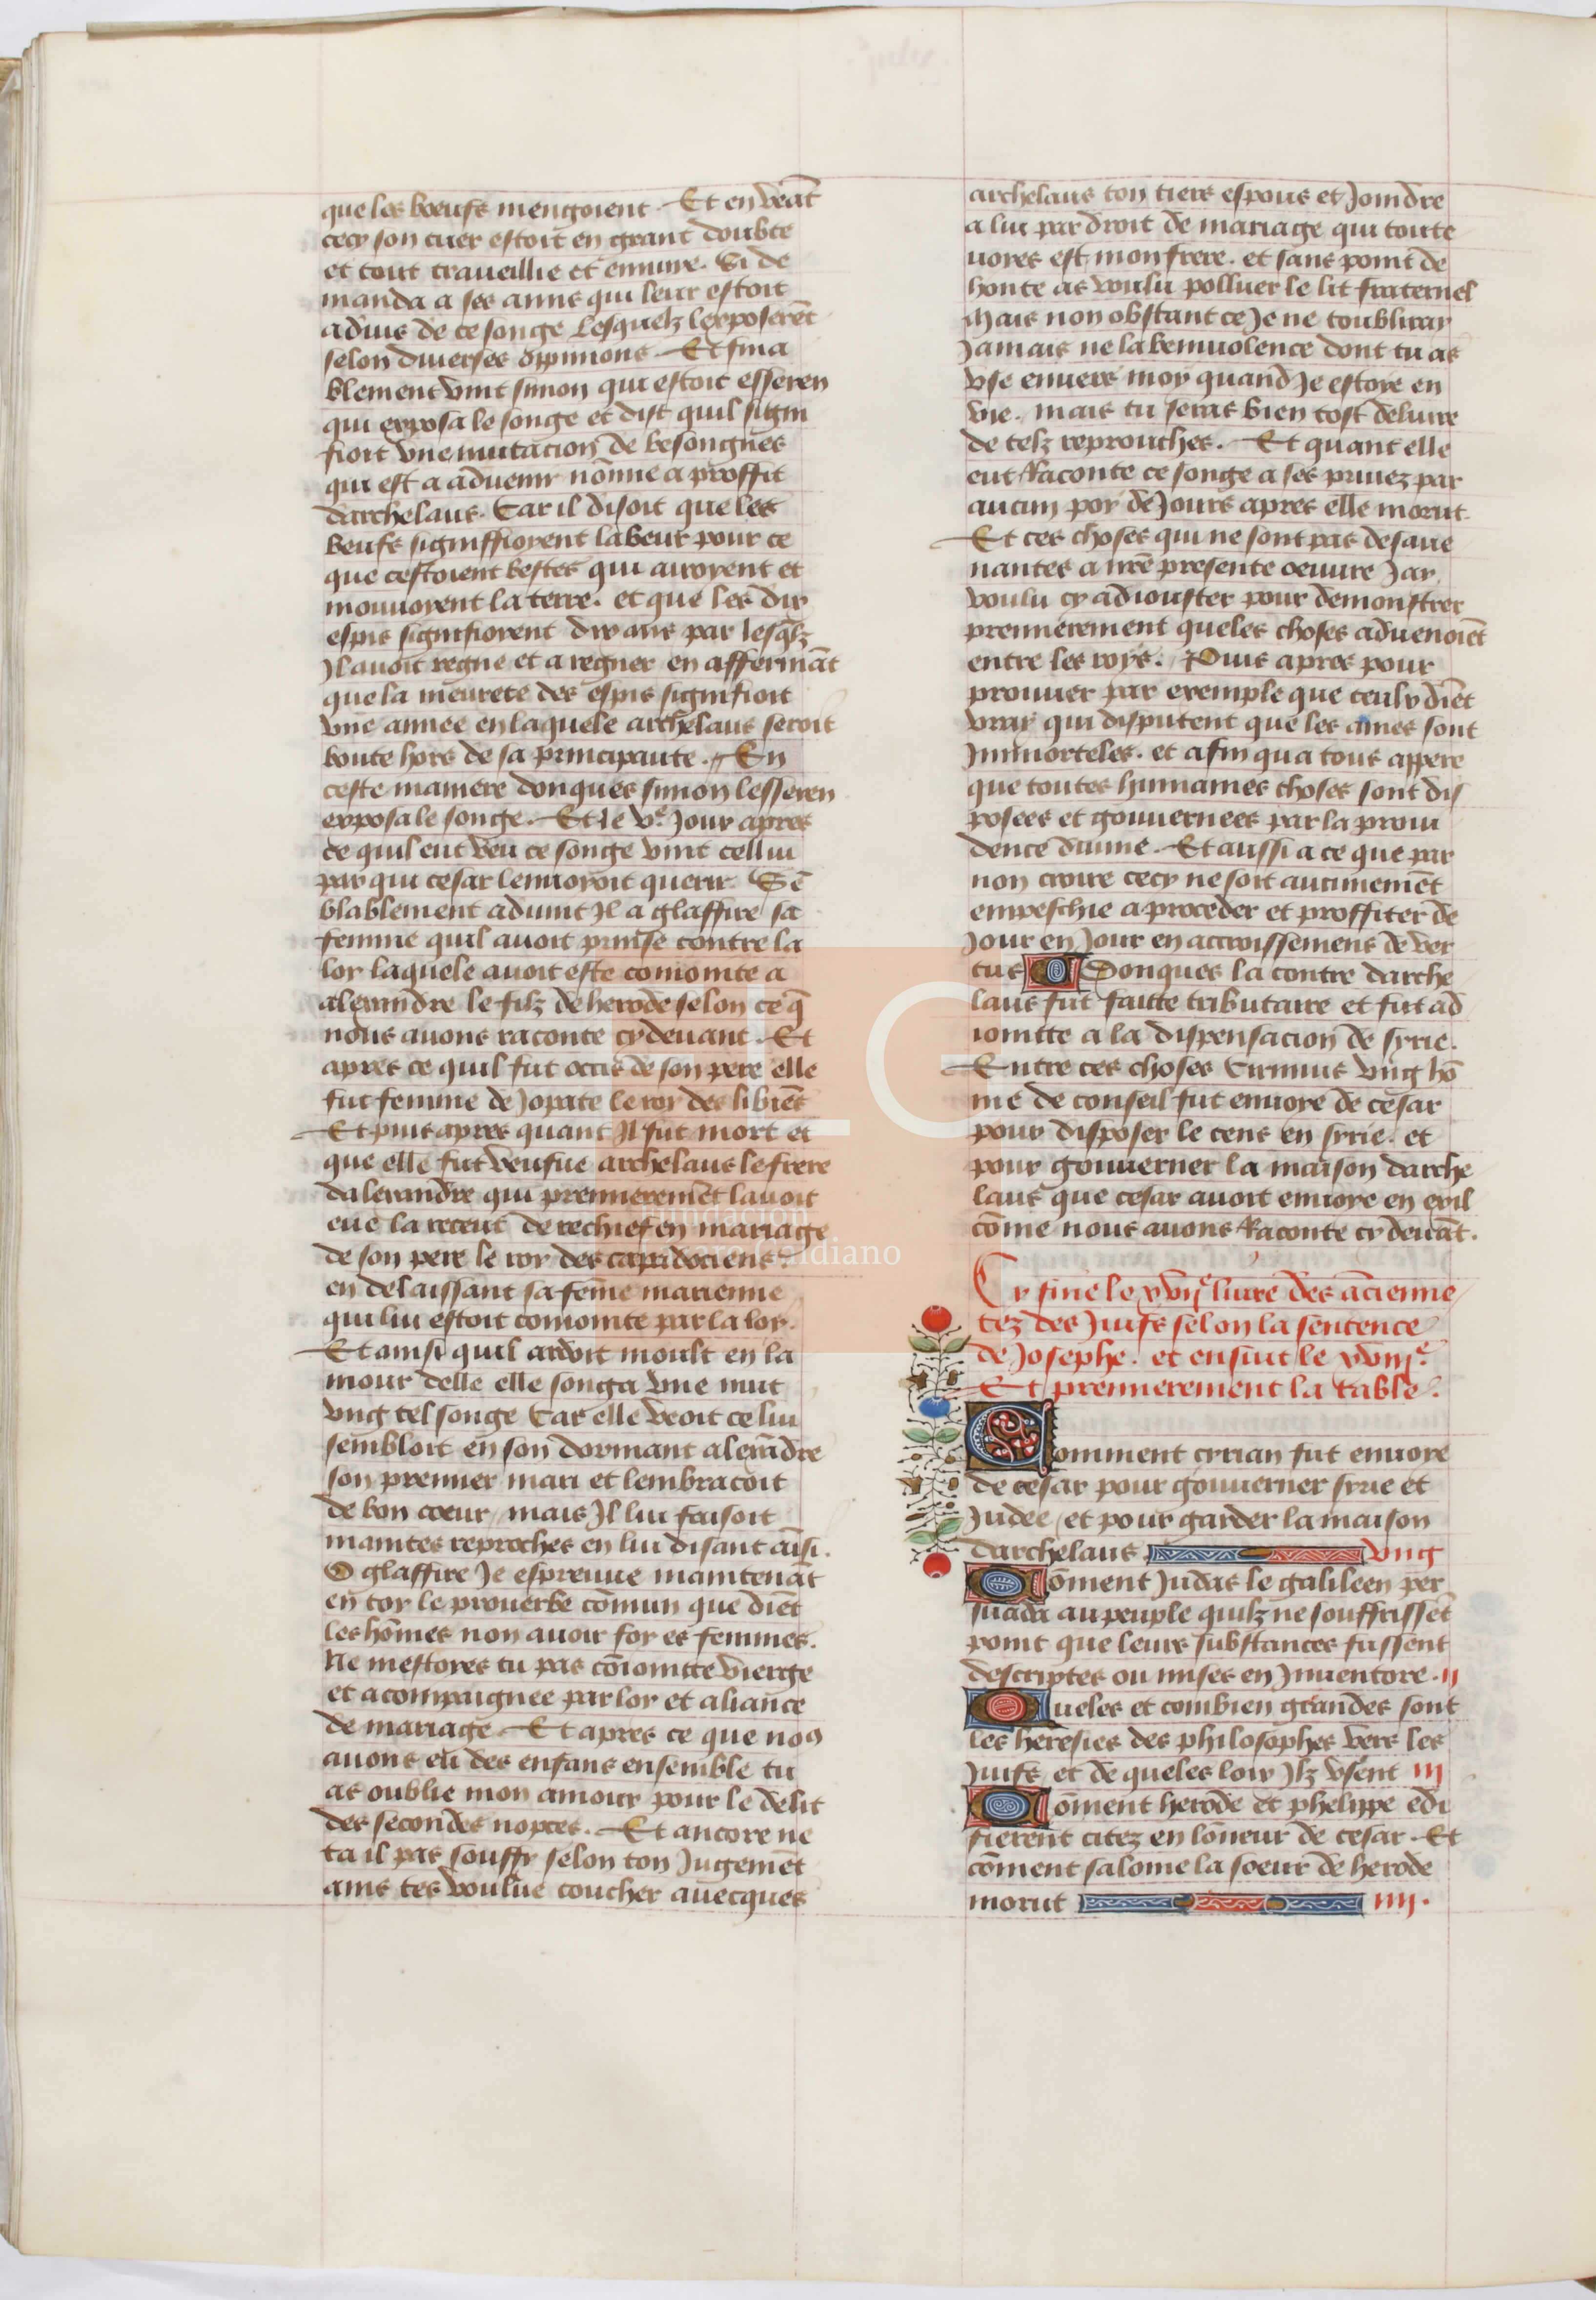 que les boeufs mengoient. Et en veāt
cecy son cuer estoit en grant doubte
et tout traueillie et ennuye. Si de
manda a ses amis qui leur estoit
aduis de ce songe Lesquelz lexposerēt
selon diuerses oppinions. Et fina
blement vint simon qui estoit esseren
qui exposa le songe et dist quil signi
fioit vne mutacion de besongnes
qui est a aduenir nōnne a proffit
darchelaus. Car il disoit que les
beufs signiffioyent labeur pour ce
que cestoient bestes qui auoyent et
mouuoyent la terre. et que les dix
espis signifioyent dix ans par lesq̄lz
Il auoit regne et a regner en affermāt
que la meurete des espis signifioit
vne annee en laquele archelaus seroit
boute hors de sa principaute. En
ceste maniere donques simon lesseren
exposa le songe. Et le ve Jour apres
ce quil eut veu ce songe vint cellui
par qui cesar lenuoyoit querir. Sē
blablement aduint Jl a glaffire sa
femme quil auoit prinse contre la
loy laquele auoit este coniointe a
alexandre le filz de herode selon ce q̄
nous auons raconte cy deuant. Et
apres ce quil fut occis de son pere elle
fut femme de Jopate le roy des libiēs
Et puis apres quant Jl fut mort et
que elle fut veufue archelaus le frere
dalexandre qui premieremēt lauoit
eue la receut de rechief en mariage
de son pere le roy des capadociens
en delaissant sa fēme marienne
qui lui estoit coniointe par la loy.
Et ainsi quil ardoit moult en la
mour delle elle songa vne nuit
vng tel songe Car elle veoit ce lui
sembloit en son dormant alexādre
son premier mari et lembracoit
de bon coeur, mais Jl lui faisoit
maintes reproches en lui disant aīsi.
O glaffire Je espreuue maintenāt
en toy le prouerbe cōmun que diēt
les hōmes non auoir foy es femmes.
Ne mestoyes tu pas cōioincte vierge
et acompaignee par loy et aliance
de mariage. Et apres ce que nos
auons eu des enfans ensemble tu
as oublie mon amour pour le delit
des secondes nopces. Et ancore ne
ta il pas souffi selon ton Jugemēt
ains tes voulue coucher auecques
archelaus ton tiers espous et Joindre
a lui par droit de mariage qui toute
uoyes est mon frere. et sans point de
honte as voulu polluer le lit fraternel
Mais non obstant ce Je ne toubliray
Jamais ne la beniuolence dont tu as
vse enuers moy quand Je estoye en
vie. mais tu seras bien tost deliure
de telz reprouches. Et quant elle
eut Raconte ce songe a ses priuez par
aucun poy de Jours apres elle morut
Et ces choses qui ne sont pas desaue
nantes a nrē presente oeuure Jay
voulu cy adiouster pour demonstrer
premierement queles choses aduenoiēt
entre les roys. Puis apres pour
prouuer par exemple que ceulx diēt
vray qui disputent que les ames sont
Jmmorteles. et afin qua tous appere
que toutes humaines choses sont dis
posees et gouuernees par la proui
dence diuine. Et aussi a ce que par
non croire cecy ne soit aucunemēt
empeschie a proceder et proffiter de
Jour en Jour en accroissemens de ver
tus Donques la contre darche
laus fut faitte tributaire et fut ad
iointte a la dispensacion de syrie.
Entre ces choses Cirinius vng hō
me de conseil fut enuoye de cesar
pour disposer le cens en syrie. et
pour gouuerner la maison darche
laus que cesar auoit enuoye en exil
cōme nous auons Raconte cy deuāt.
Cy fine le xviie liure des anciēne
tez des Juifs selon la sentence
de Josephe. et ensuit le xviiie.
Et premierement la table.
Comment cyrian fut enuoye
de cesar pour gouuerner syrie et
Judee, et pour garder la maison
darchelaus vng
Cōment Judas le galileen per
suada au peuple quilz ne souffrissēt
point que leurs substances fussent
descriptes ou mises en Jnuentore. ii
Queles et combien grandes sont
les heresies des philosophes vers les
Juifs et de queles loix Jlz vsent iii
Cōment herode et phelippe edi
fierent citez en lōneur de cesar. Et
cōment salome la soeur de herode
morut iiii.
FLG
Fundación
Lázaro Galdiano